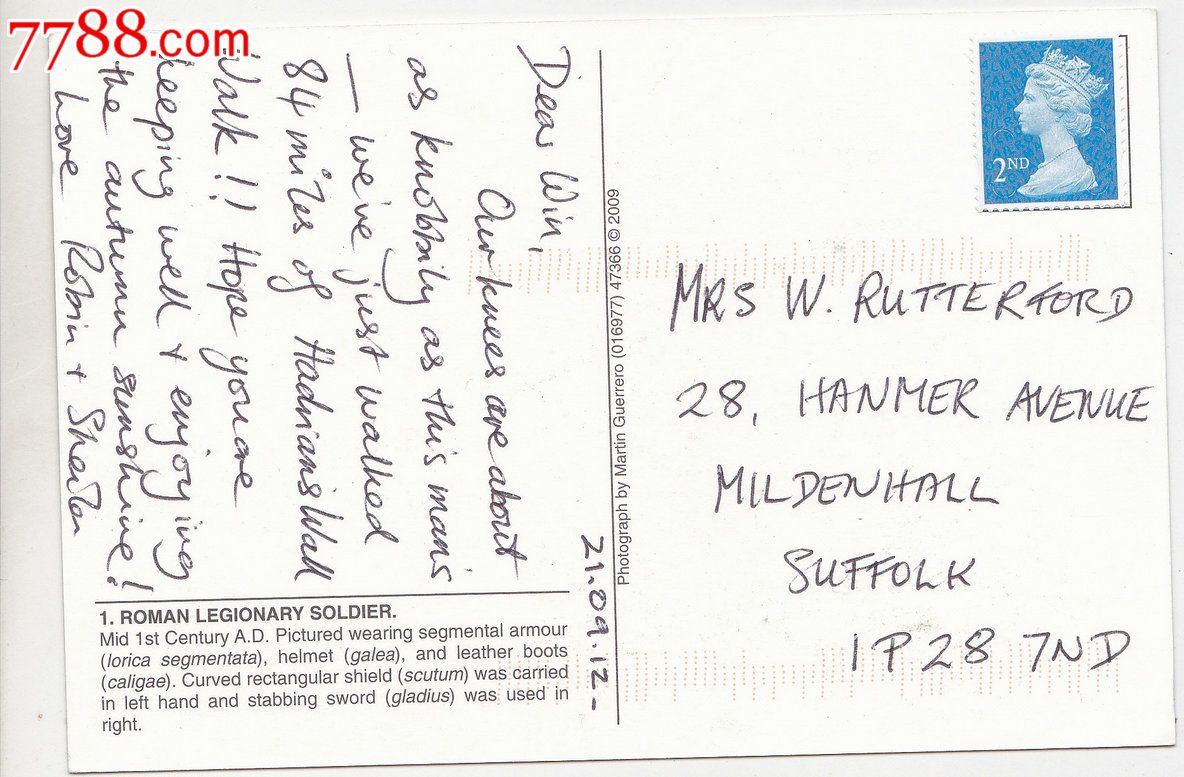 7788.com
21.09.12-
Dear Win,
Our knees are about
as knobbily as this man's
— we've just walked
84 miles of Hadrians Wall
Walk!! Hope you are
keeping well + enjoying
the autumn sunshine!
Love Robin + Sheila
1. ROMAN LEGIONARY SOLDIER.
Mid 1st Century A.D. Pictured wearing segmental armour
(lorica segmentata), helmet (galea), and leather boots
(caligae). Curved rectangular shield (scutum) was carried
in left hand and stabbing sword (gladius) was used in
right.
Photograph by Martin Guerrero (016977) 47366 © 2009
2ND
MRS W. RUTTERFORD
28, HANMER AVENUE
MILDENHALL
SUFFOLK
IP28 7ND